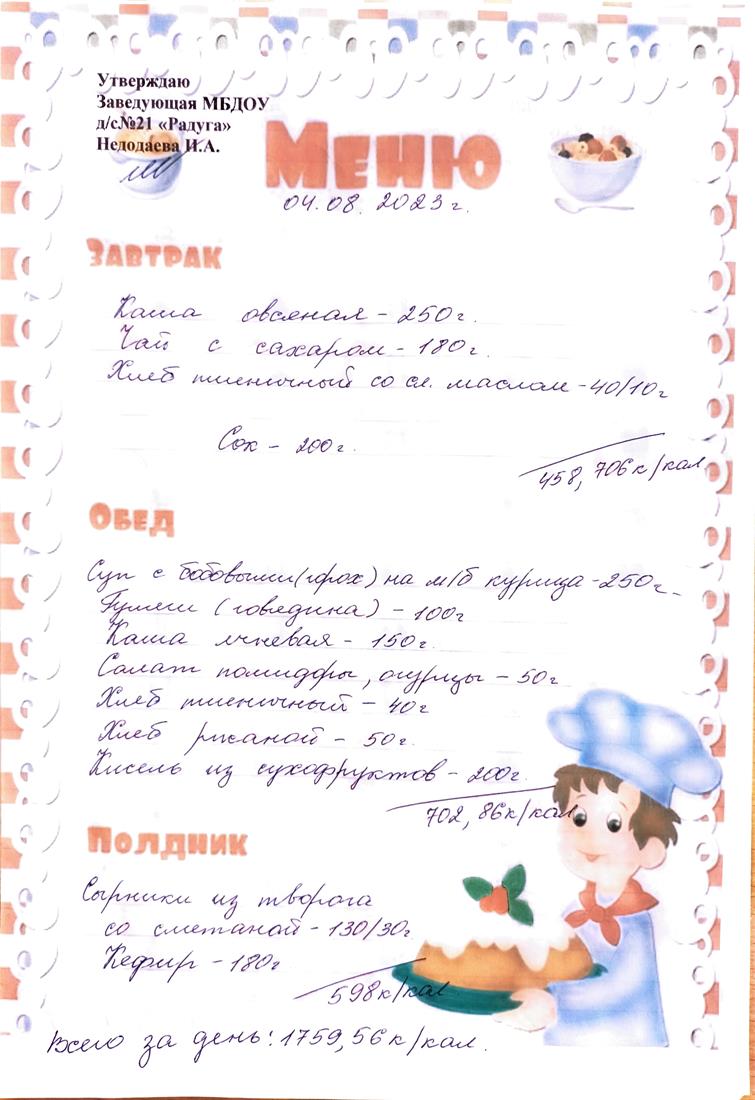 Утверждаю
Заведующая МБДОУ
д/с№21 «Радуга»
Недодаева И.А.
Меню
04.08.2023г.
Завтрак
Каша овсяная - 250г.
Чай с сахаром - 180г.
Хлеб пшеничный со сл. маслом - 40/10г
Сок - 200г.
458,706к/кал
Обед
Суп с бобовыми(горох) на м/б курица - 250г.
Гуляш (говядина) - 100г
Каша ячневая - 150г.
Салат помидоры, огурцы - 50г
Хлеб пшеничный - 40г
Хлеб ржаной - 50г.
Кисель из сухофруктов - 200г.
702,86к/кал
Полдник
Сырники из творога
со сметаной - 130/30г
Кефир - 180г
598к/кал
Всего за день: 1759,56к/кал.